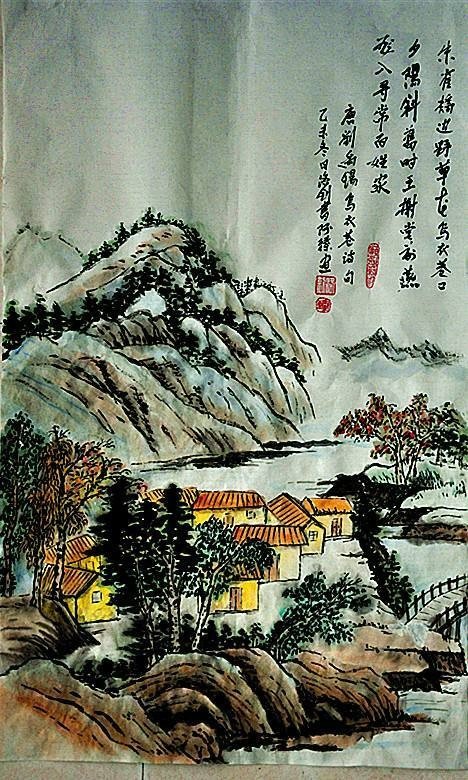 朱雀橋边野草花乌衣巷口
夕陽斜舊时王榭堂前燕
飛入寻常百姓家
唐劉禹锡乌衣巷诗句
乙未冬日